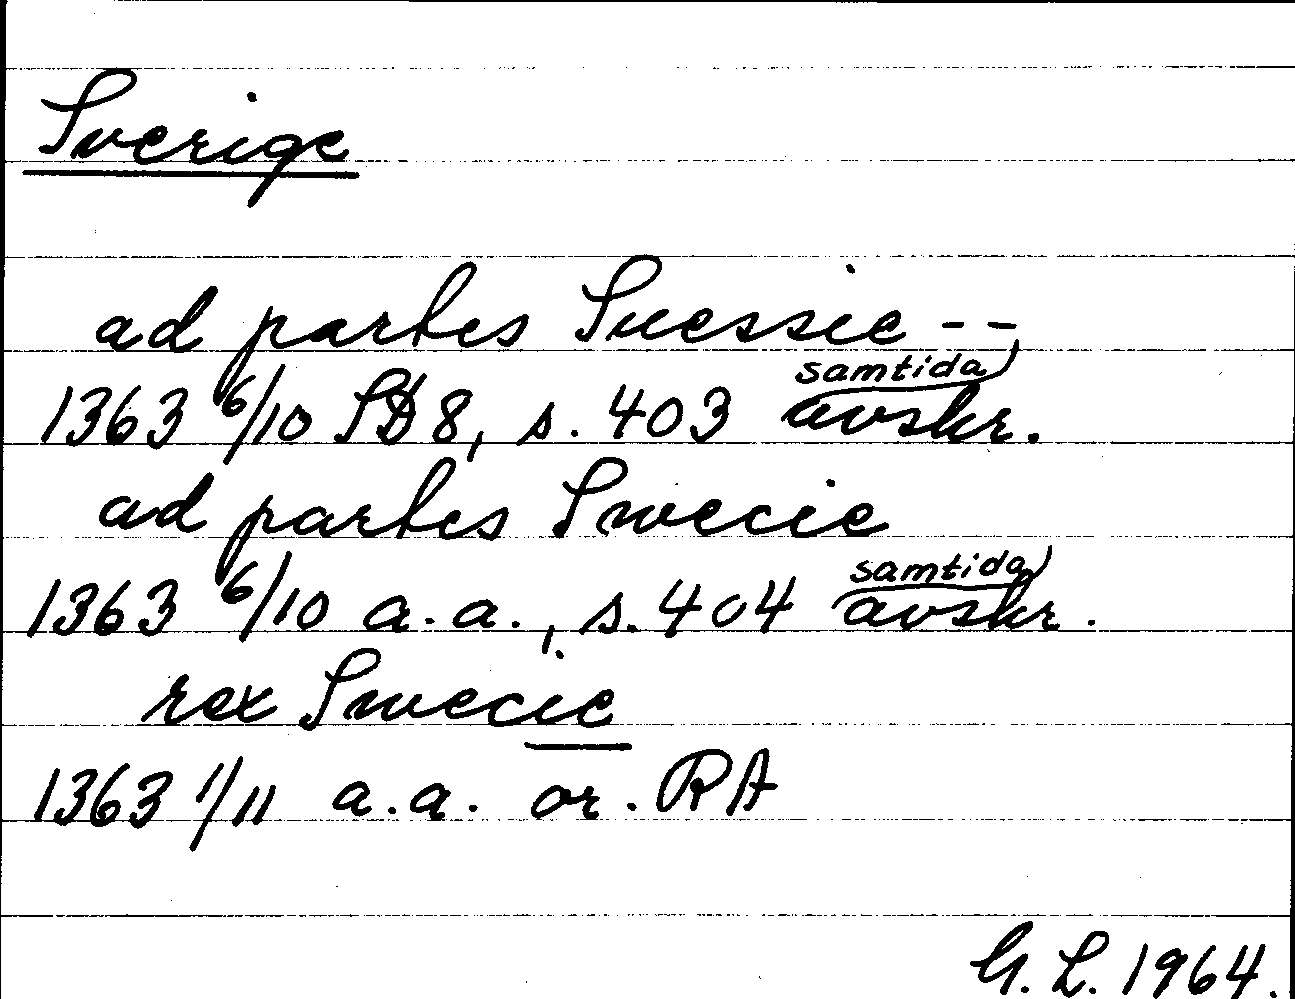 Sverige
ad partes Suessie --,
1363 6/10 SD 8, s. 403 samtida avskr.
ad partes Swecie
1363 6/10 a.a., s. 404 samtida avskr.
rex Swecie
1363 1/11 a.a. or. RA
G. L. 1964.